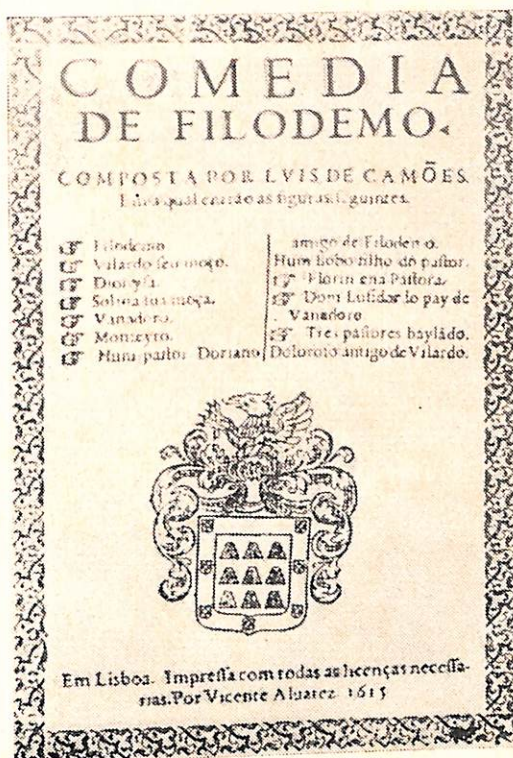 COMEDIA
DE FILODEMO.
COMPOSTA POR LVIS DE CAMÕES.
Em a qual entrão as figuras seguintes.
Filodemo.
Vilardo seu moço.
Dionysa.
Solina sua moça.
Vanadoro.
Monteyro.
Hum pastor Doriano
amigo de Filodemo.
Hum bobo filho do pastor.
Florimena Pastora.
Dom Lusidardo pay de
Vanadoro.
Tres pastores baylãdo.
Doloroso amigo de Vilardo.
Em Lisboa. Impressa com todas as licenças necessa-
rias. Por Vicente Aluarez 1615